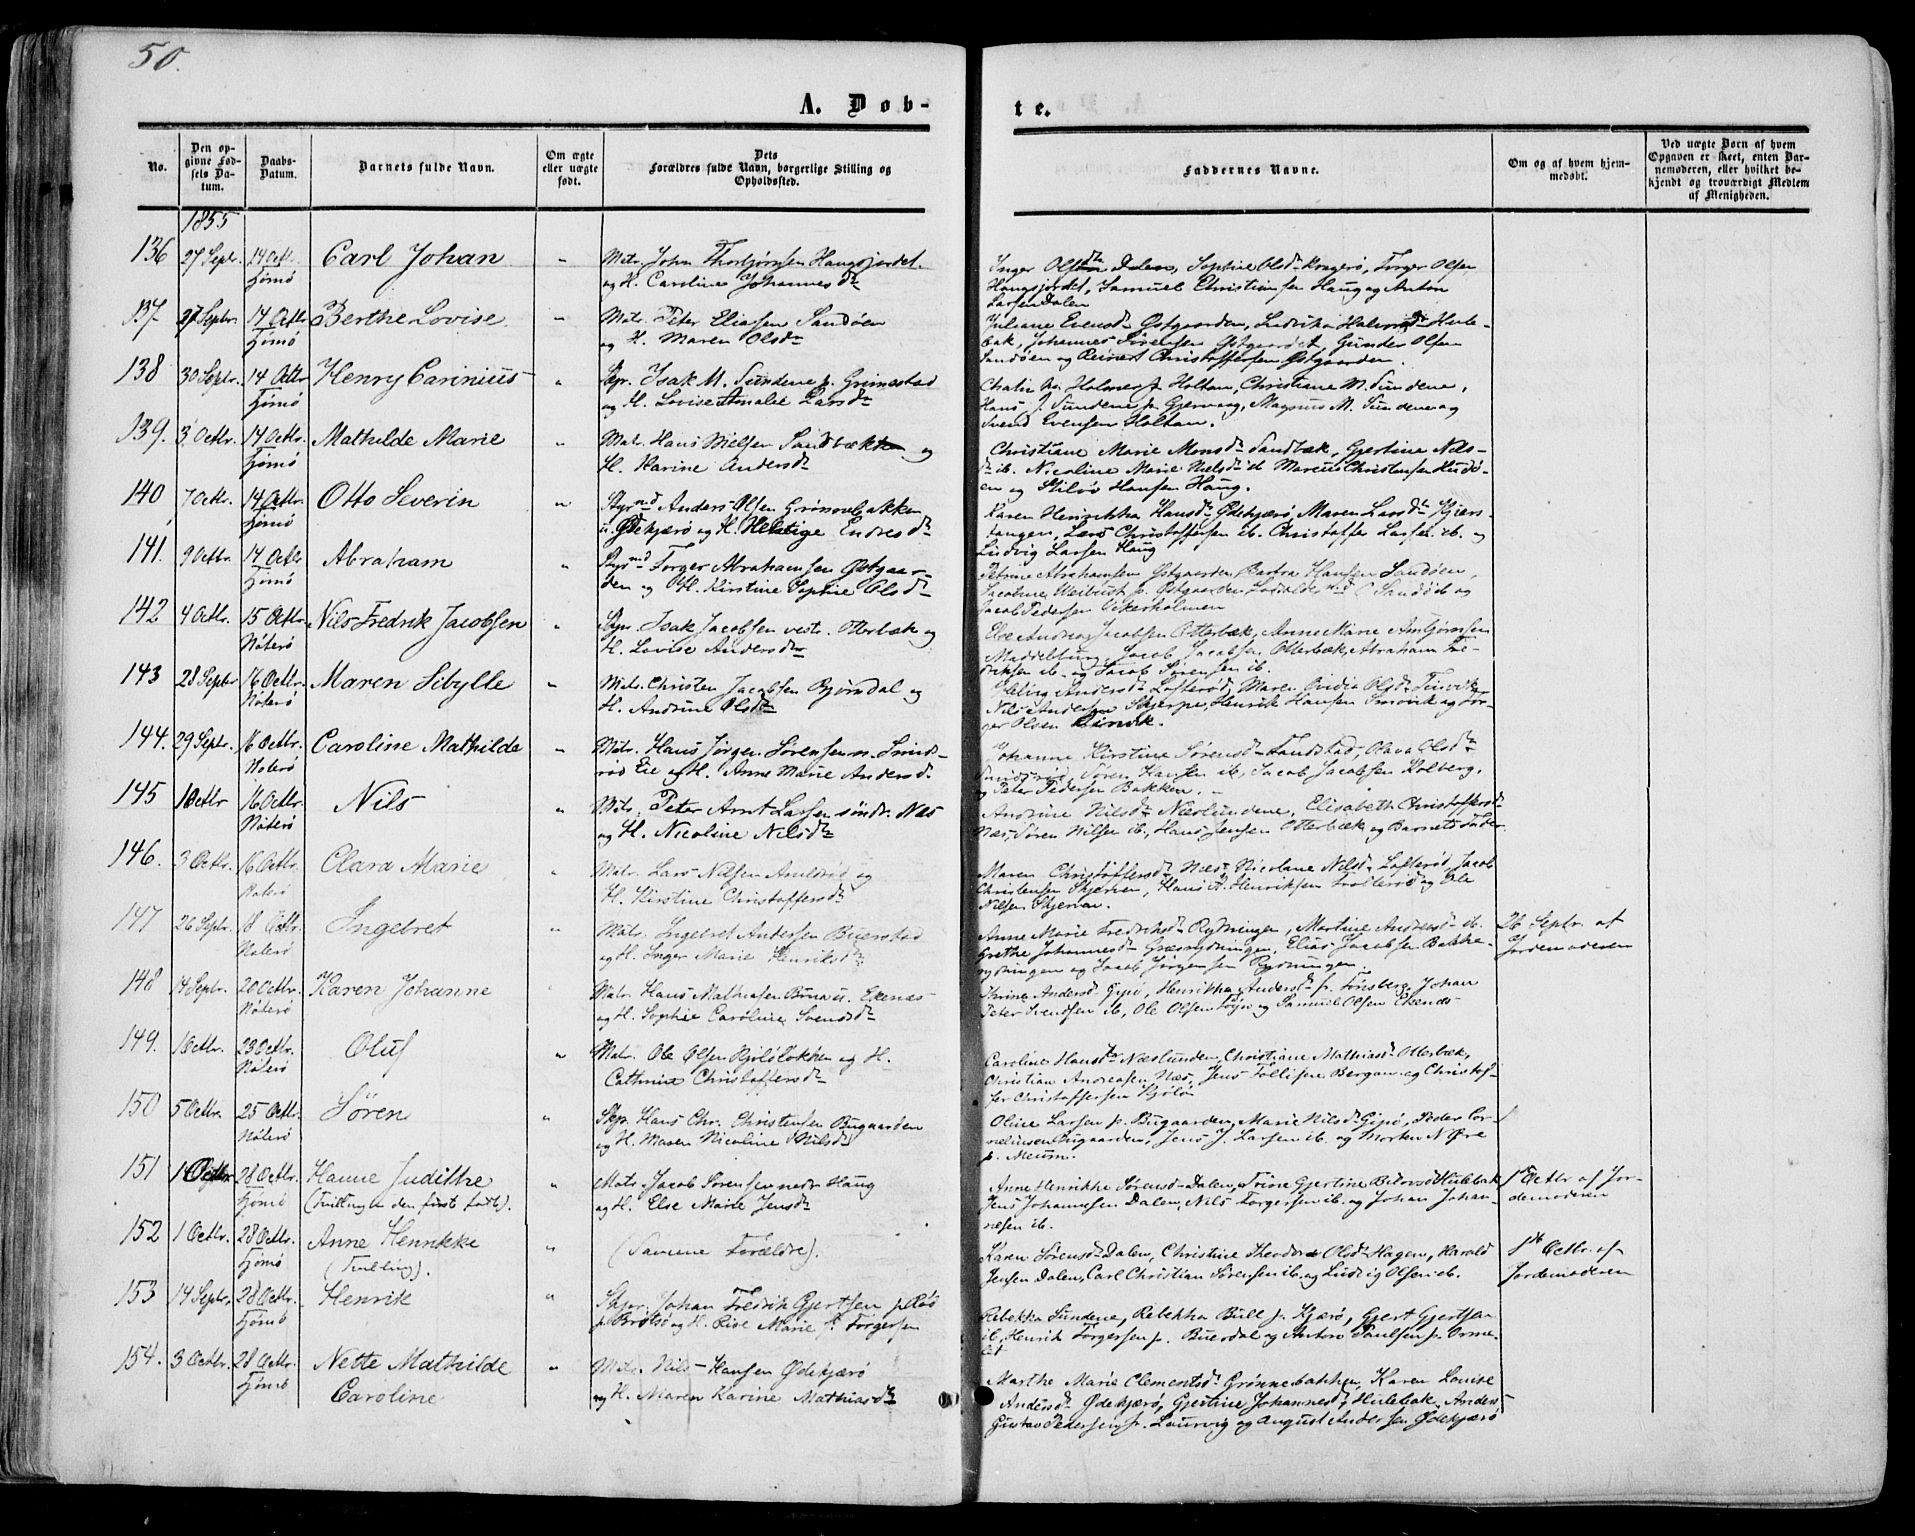 50.
A. Døb-
te.
No.
Den op-
givne Fød-
sels Da-
tum.
Daabs-
Datum.
Barnets fulde Navn.
Om ægte
eller uægte
født.
Dets
Forældres fulde Navn, borgerlige Stilling og
Opholdssted.
Faddernes Navne.
Om og af hvem hjem-
medøbt.
Ved uægte Børn af hvem
Opgaven er skeet, enten Bar-
nemoderen, eller hvilket be-
kjendt og troværdigt Medlem
af Menigheden.
1855
136 27 Septr. 14 Octr. Carl Johan " Matr. John Thorbjørnsen Haugsjordet
Tjømø og H. Caroline Johannesdtr
Inger Olsdtr Dalen, Sophie Olsdtr Kragerø, Torger Olsen
Haugsjordet, Samuel Christiansen Haug og Anton
Larsen Dalen
137. 27 Septr 14 Octbr Berthe Lovise. " Matr. Peter Eliassen Sandøen
Tjømø og H. Maren Olsdtr
Juliane Evensdtr Østgaarden, Halvorsdtr Hule-
bak, Johannes Sørensen Gunder Olsen
Sandøen og Reinert Christoffersen Østgaarden.
138 30 Septr. 14 Octbr Henry Carinius " Skpr. Isak M. Sundene p. Grimestad
Tjømø og H. Lovise Amalie Larsdtr
Holmer p. Holtan, Christiane M. Sundene,
Hans J. Sundene p. Gjervaag, Magnus M. Sundene og
Svend Evensen Holtan.
139. 3 Octbr. 14 Octbr. Mathilde Marie " Matr. Hans Nielsen Sandbæk og
Tjømø H. Karine Andersdtr
Christiane Marie Monsdtr Sandbæk, Gjertine Nils-
dtr ib. Nicoline Marie Nielsdtr ib Marcus Christensen Hudø-
en og Hansen Haug.
140 7 Octbr. 14 Octbr. Otto Severin " Styrmd Anders Olsen Grønnebakken
Tjømø u. Ødekjærø og H. Helvige Endresdtr
Karen Henrikka Hansdtr Ødekjærø, Maren Larsdtr Kjøn-
tangen, Lars Christoffersen ib. Christoffer Larsen ib. og
Ludvig Larsen Haug
141. 9 Octbr. 14 Octbr Abraham " Styrmd Torger Abrahamsen Østgaar-
Tjømø den og H. Kirstine Sophie Olsdtr
Petrine Abrahamsen Østgaarden, Hansen Sandøen,
p. Østgaarden Sandø ib og
Jacob Pedersen
142 4 Octbr. 15 Octbr Nils Fredrik Jacobsen " Skpr. Isak Jacobsen vestr. Otterbæk og
Nøterø H. Lovise Andersdtr
Else Andrea Jacobsen Otterbæk, Anne Marie Arnbjørnsen
Jacob Jacobsen Otterbæk, Abraham Fre-
driksen ib. og Jacob Sørensen ib.
143 28 Septr 16 Octbr. Maren Sibylle " Matr. Christen Jacobsen Bjørndal og
Nøterø H. Andrine Olsdtr
Andersdtr Lofterød, Maren Olsdtr
Nils Andersen Skjerpe, Henrik Hansen og Tor-
ger Olsen
144. 29 Septr. 16 Octbr. Caroline Mathilde " Matr. Hans Jørgen Sørensen n. Smids-
Nøterø rød Eie og H. Anne Marie Andersd.
Johanne Kirstine Sørensdtr Olava Olsdtr
Smidsrød, Søren Hansen ib, Jacob Jacobsen Kolberg,
og Peter Pedersen Bakken.
145 1 Octbr 16 Octbr. Nils " Matr. Peter Arnt Larsen søndr. Næs
Nøterø og H. Nicoline Nilsdtr
Andrine Nilsdtr Næslundene, Elisabeth Christoffersdtr
Næs, Søren Nilsen ib, Hans Jensen Otterbæk og Barnets Fader.
146. 3 Octbr. 16 Octbr. Clara Marie " Matr. Lars Nilsen og
Nøterø H. Kirstine Christoffersdtr
Maren Christoffersdtr Næs, Nicoline Nilsdtr Lofterød, Jacob
Christensen Skjerven, Hans A. Henriksen og Ole
Nilsen Skjerven.
147 26 Septr. 18 Octbr. Ingebret " Matr. Ingebret Andersen Buerstad
Nøterø og H. Inger Marie Henriksdtr
Anne Marie Fredriksdtr Rydningen, Martine Andersdtr ib.
Grethe Johannesdtr Græsrydningen, Elias Jacobsen Bakke-
rydningen og Jacob Jørgensen Rydningen.
26 Septr. af
Jordemoderen
148 14 Septr. 20 Octbr. Karen Johanne " Matr. Hans Mathiasen Brua u. Ekenæs
Nøterø og H. Sophie Caroline Svendsdtr
Karine Andersdtr Gipø, Henrikka Andersdtr fr. Tønsberg, Johan
Peter Svendsen ib, Ole Olsen og Samuel Olsen Ekenæs
149. 1 Octbr. 23 Octbr. Oluf " Matr. Ole Olsen Kjøløløkken og H.
Nøterø Cathrine Christoffersdtr
Caroline Hansdtr Næslunden, Christiane Mathiasdtr Otterbæk,
Christian Andreasen Næs, Jens Tollefsen Bergan og Christof-
fer Christoffersen Kjølø
150 5 Octbr. 25 Octbr. Søren " Skpr. Hans Chr. Christensen Bugaarden
Nøterø og H. Maren Nicoline Nilsdtr
Oline Larsen p. Bugaarden, Marie Nilsdtr Gipø, Peder Cor-
neliussen Bugaarden, Jens J. Larsen ib. og Morten N. Øre
p. Meum.
151 1 Octbr 28 Octbr. Hanne Judithe " Matr. Jacob Sørensen nedr Haug
Tjømø (Tvilling den først fødte). og H. Else Marie Jensdtr
Anne Henrikke Sørensdtr Dalen, Gjertine Hulebak
Jens Johannesen Dalen, Nils Torgersen ib. og Johan Johan-
nesen ib.
1ste Octbr af Jor-
demoderen
152 1 Octbr. 28 Octbr. Anne Henrikke " (Samme Forældre).
Tjømø (Tvilling).
Karen Sørensdtr Dalen, Christine Theodora Olsdtr Hagen, Harald
Jensen Dalen, Carl Christian Sørensen ib. og Ludvig Olsen ib.
1ste Octbr. af
Jordemoderen
153 14 Septr. 28 Octbr. Henrik " Skpr. Johan Fredrik Gjertsen
Tjømø p. Brøtsø og H. Marie f. Torgersen
Rebekka Sundene, Rebekka Bull p. Kjærø, Gjert Gjertsen
ib, Henrik Torgersen p. Buerdal og Anton Paulsen p. Orme-
let
154. 3 Octbr. 28 Octbr. Nette Mathilde " Matr. Nils Hansen Ødekjærø
Tjømø Caroline og H. Maren Karine Mathiasdtr
Marthe Marie Clementsdtr Grønnebakken, Karen Louise
Andersdtr Ødekjærø, Gjertine Johannesdtr Hulebak, Anders
Gustav Pedersen fr. Laurvig og August Andersen Ødekjærø